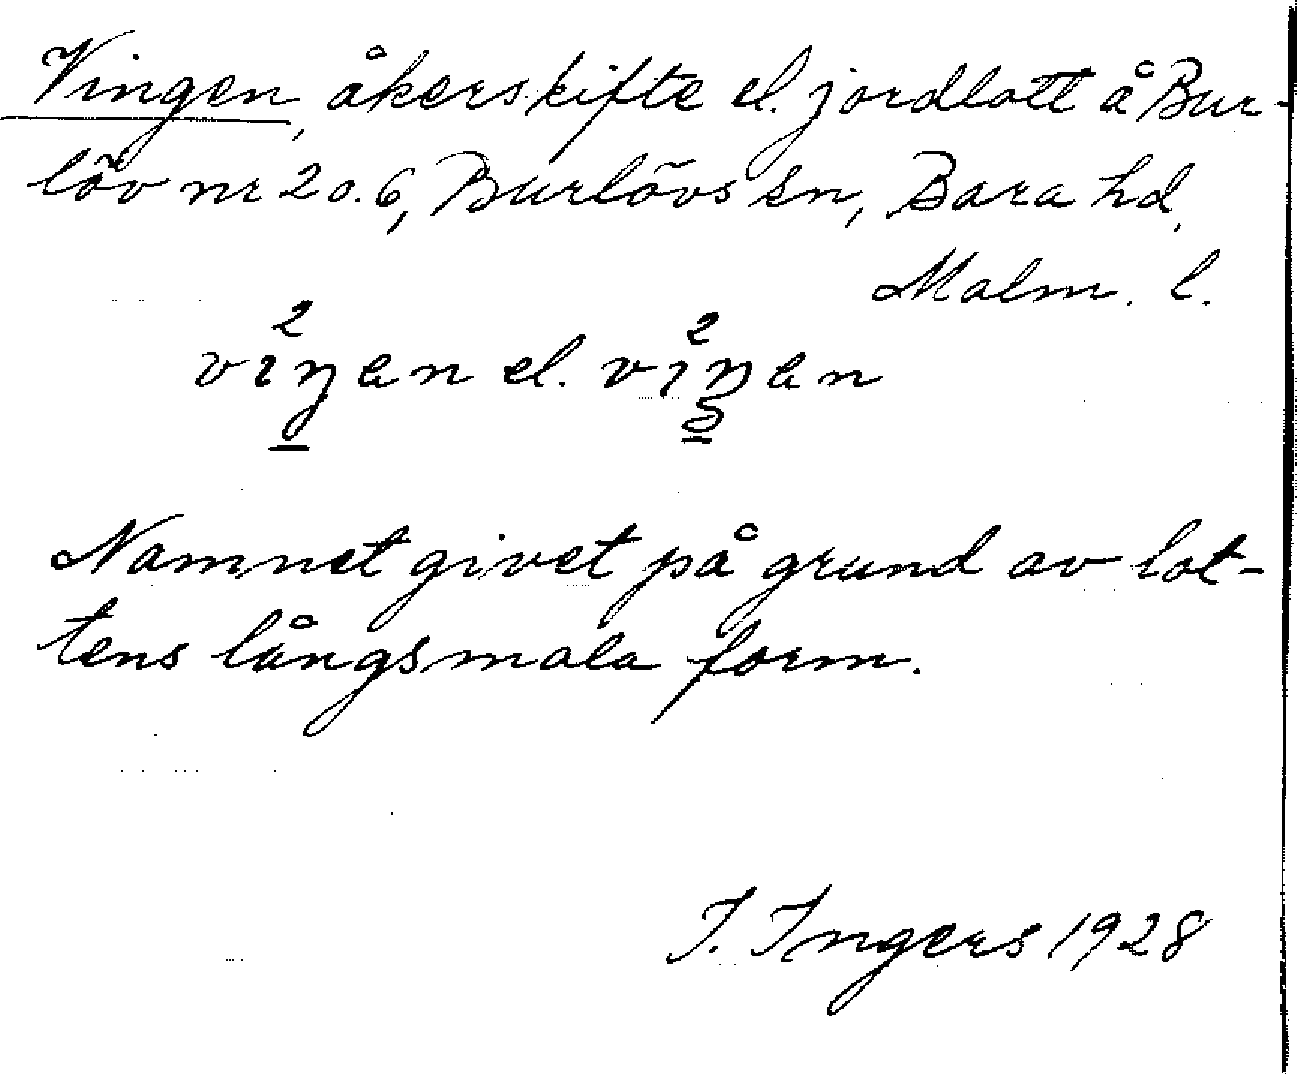 Vingen, åkerskifte el. jordlott å Bur-
löv nr 20.6, Burlövs sn, Bara hd,
Malm. l.
el.
Namnet givet på grund av lot-
tens långsmala form.
I. Ingers 1928